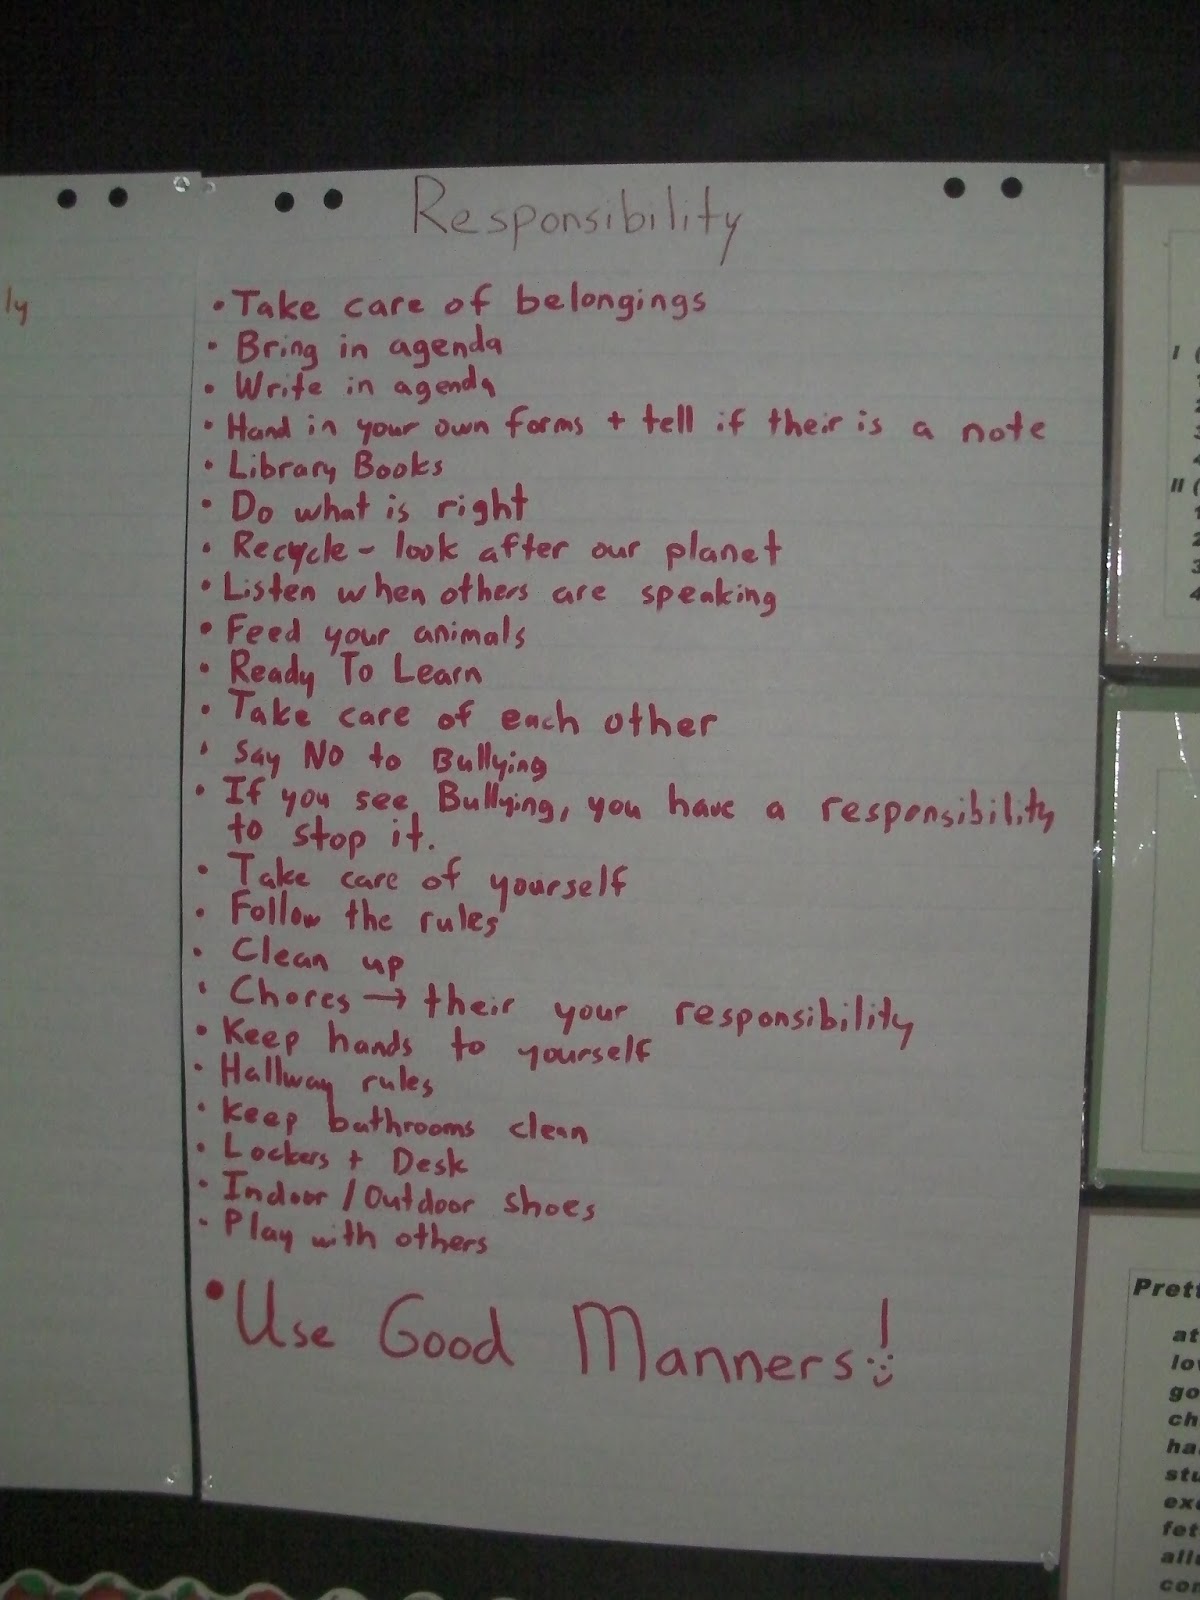 ly
Responsibility
• Take care of belongings
• Bring in agenda
• Write in agenda
• Hand in your own forms + tell if their is a note
• Library Books
• Do what is right
• Recycle - look after our planet
• Listen when others are speaking
• Feed your animals
• Ready To Learn
• Take care of each other
• Say NO to Bullying
• If you see Bullying, you have a responsibility
to stop it.
• Take care of yourself
• Follow the rules
• Clean up
• Chores → their your responsibility
• Keep hands to yourself
• Hallway rules
• Keep bathrooms clean
• Lockers + Desk
• Indoor / Outdoor shoes
• Play with others
• Use Good Manners!
I (
II (
1
2
3
4
Prett
at
lov
go
ch
ha
stu
exc
fet
alla
con